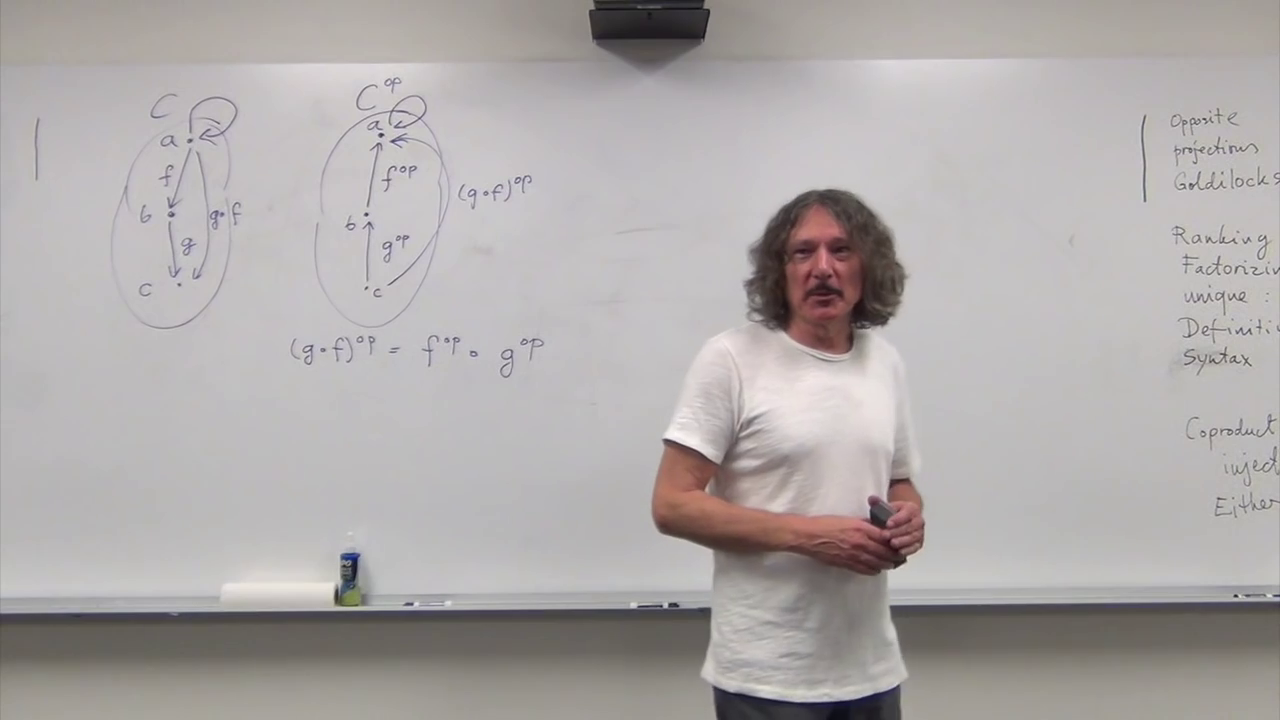 C
a
f
b
g∘f
g
c
C^op
a
f^op
(g∘f)^op
b
g^op
c
(g∘f)^op = f^op ∘ g^op
Opposite
projections
Goldilocks
Ranking
Factorizin
unique :
Definiti
Syntax
Coproduct
inject
Either